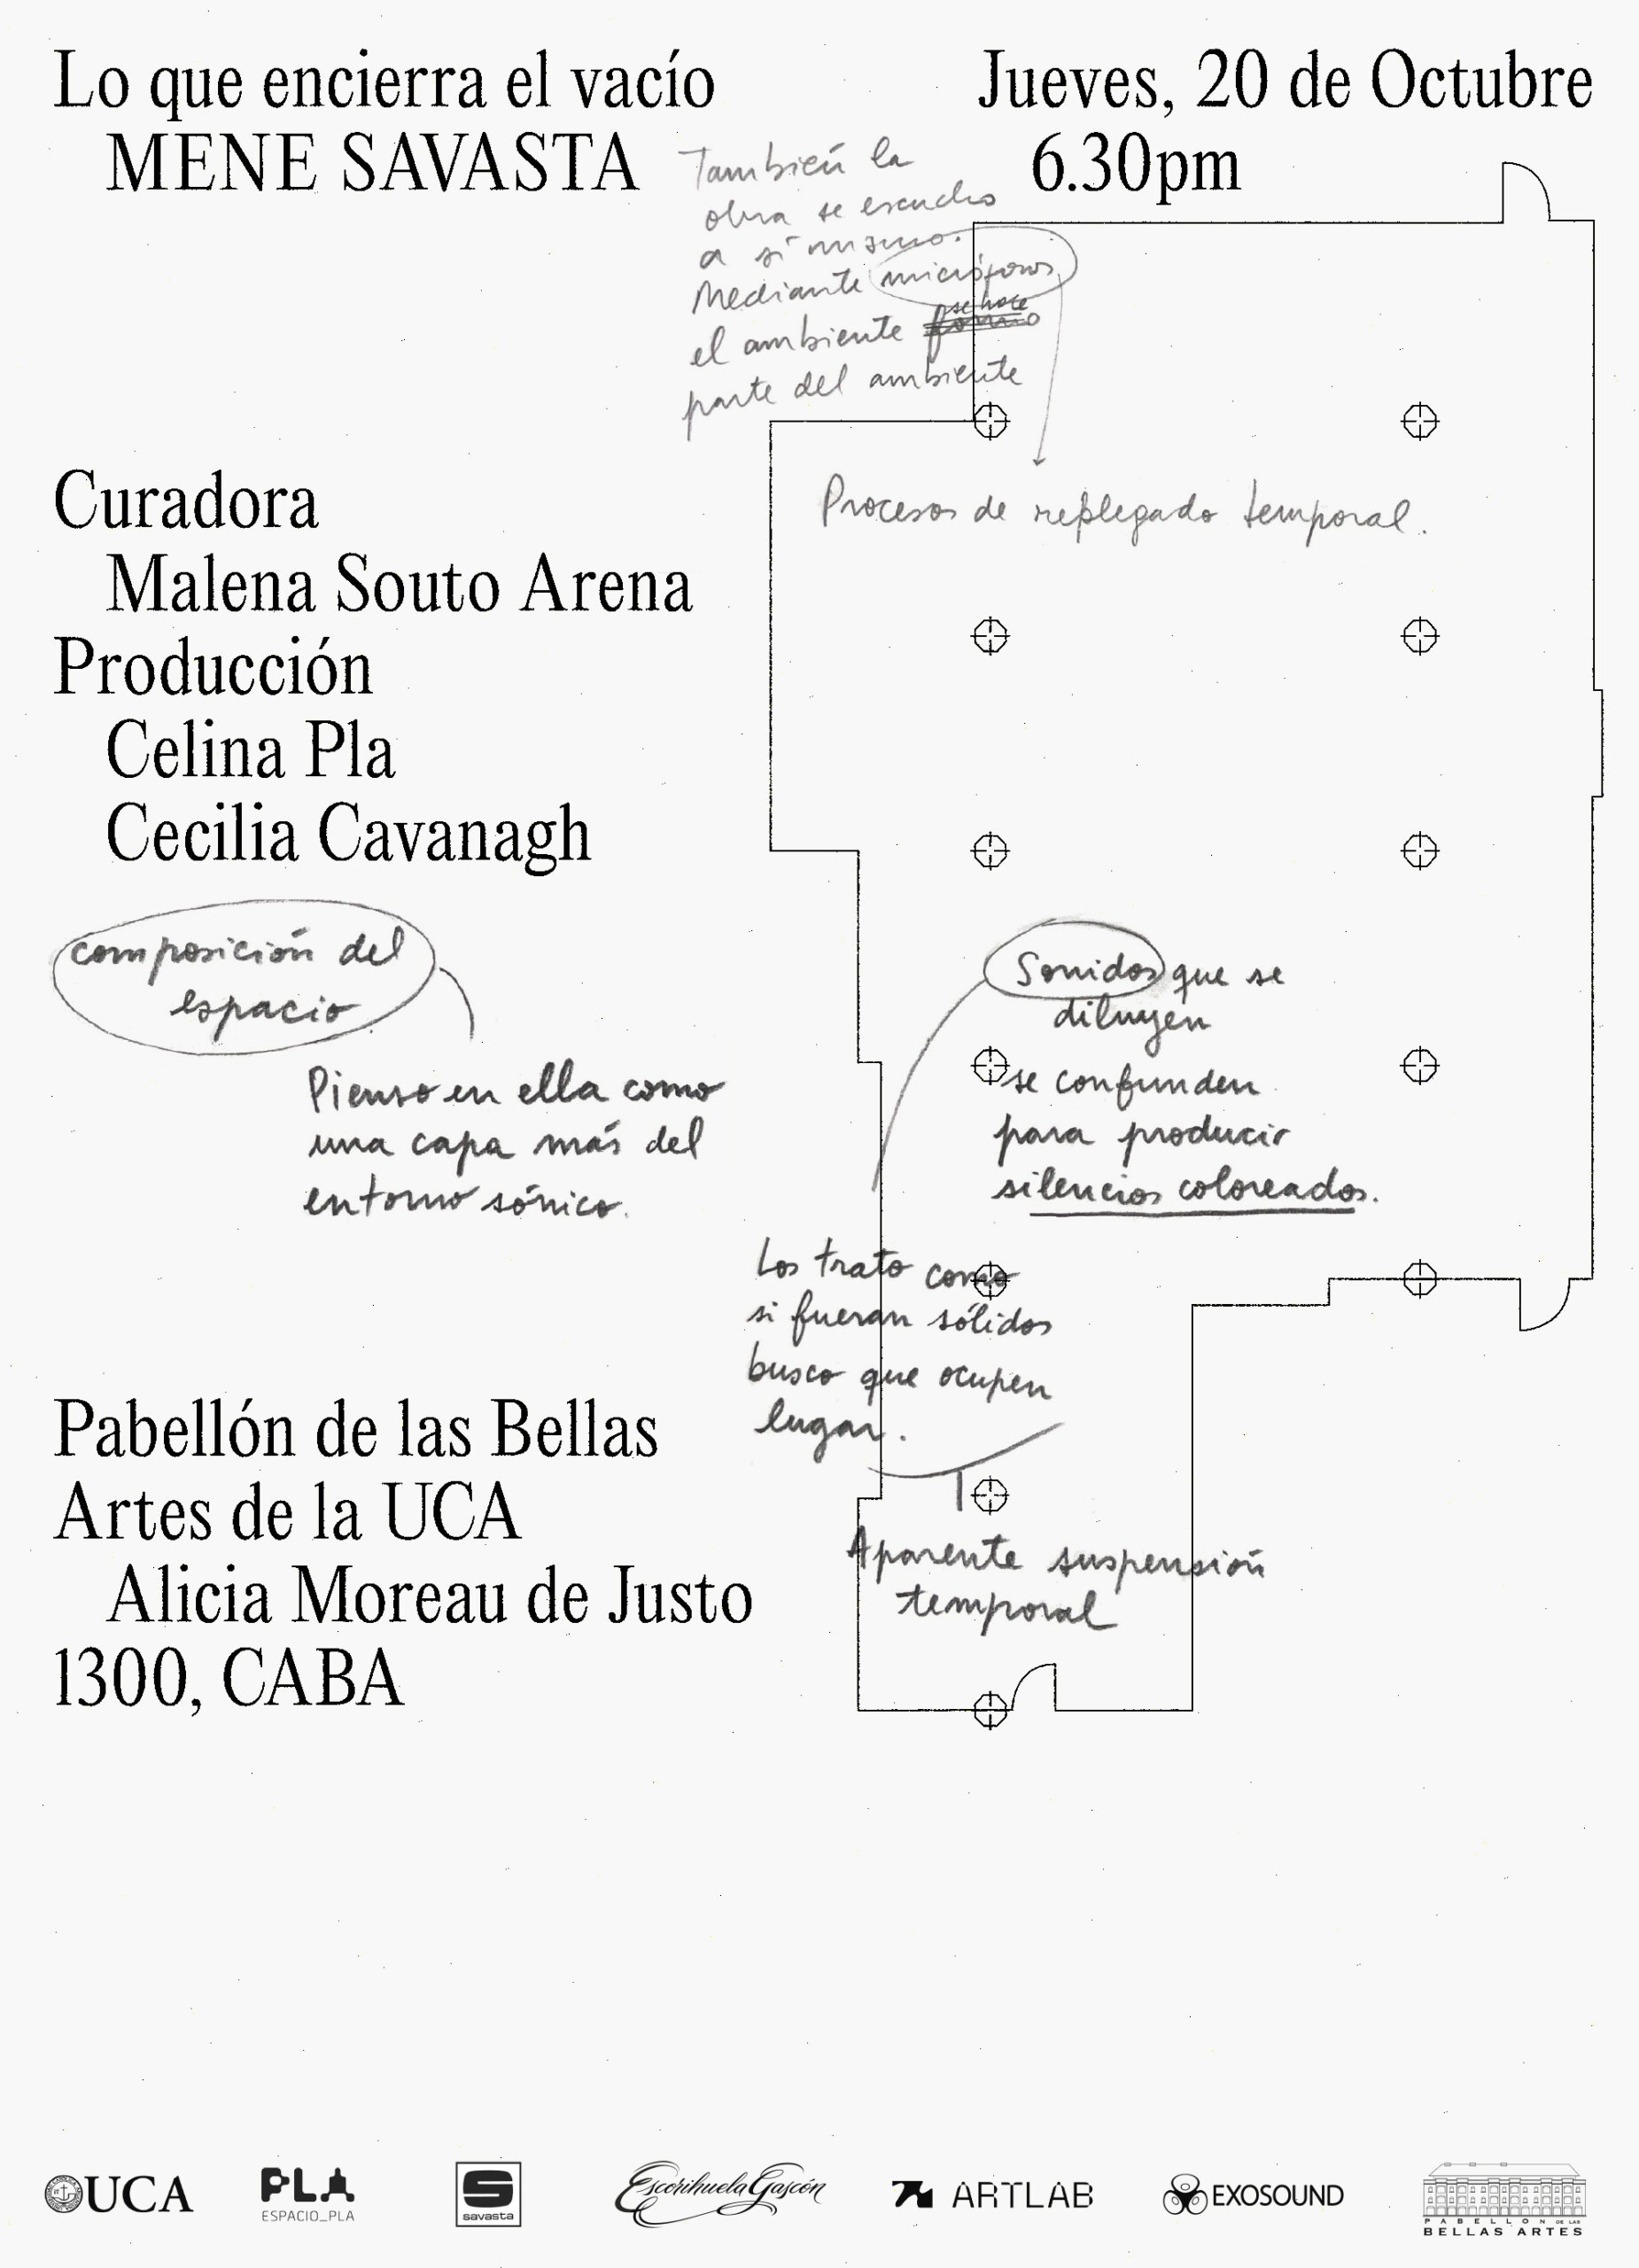 Lo que encierra el vacío
MENE SAVASTA
Jueves, 20 de Octubre
6.30pm
También la
obra se escucha
a sí misma.
Mediante micrófonos
el ambiente se hace
parte del ambiente
Procesos de replegado temporal.
Curadora
Malena Souto Arena
Producción
Celina Pla
Cecilia Cavanagh
composición del
espacio
Pienso en ella como
una capa más del
entorno sónico.
Sonidos que se
diluyen
se confunden
para producir
silencios coloreados.
Los trato como
si fueran sólidos
busco que ocupen
lugar.
Aparente suspensión
temporal
Pabellón de las Bellas
Artes de la UCA
Alicia Moreau de Justo
1300, CABA
UCA
PLA
ESPACIO_PLA
S
savasta
Escorihuela Gascón
ARTLAB
EXOSOUND
PABELLON DE LAS
BELLAS ARTES